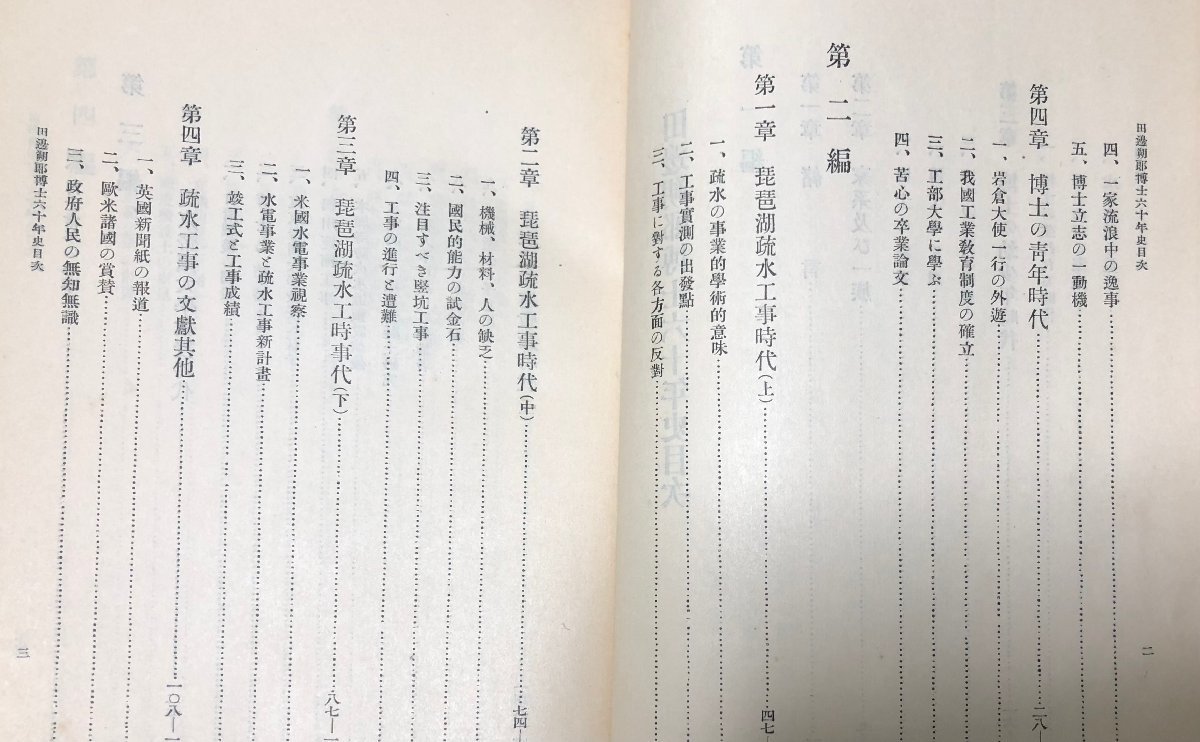 田邊朔郎博士六十年史目次
四、一家流浪中の逸事
五、博士立志の一動機
第四章 博士の靑年時代 二八—
一、岩倉大使一行の外遊
二、我國工業敎育制度の確立
三、工部大學に學ぶ
四、苦心の卒業論文
第二編
第一章 琵琶湖疏水工事時代(上) 四七—
一、疏水の事業的學術的意味
二、工事實測の出發點
三、工事に對する各方面の反對
二
第二章 琵琶湖疏水工事時代(中) 七四—
一、機械、材料、人の缺乏
二、國民的能力の試金石
三、注目すべき竪坑工事
四、工事の進行と遭難
第三章 琵琶湖疏水工時事代(下) 八七—
一、米國水電事業視察
二、水電事業と疏水工事新計畫
三、竣工式と工事成績
第四章 疏水工事の文獻其他 一〇八—
一、英國新聞紙の報道
二、歐米諸國の賞賛
三、政府人民の無知無識
田邊朔郎博士六十年史目次
三